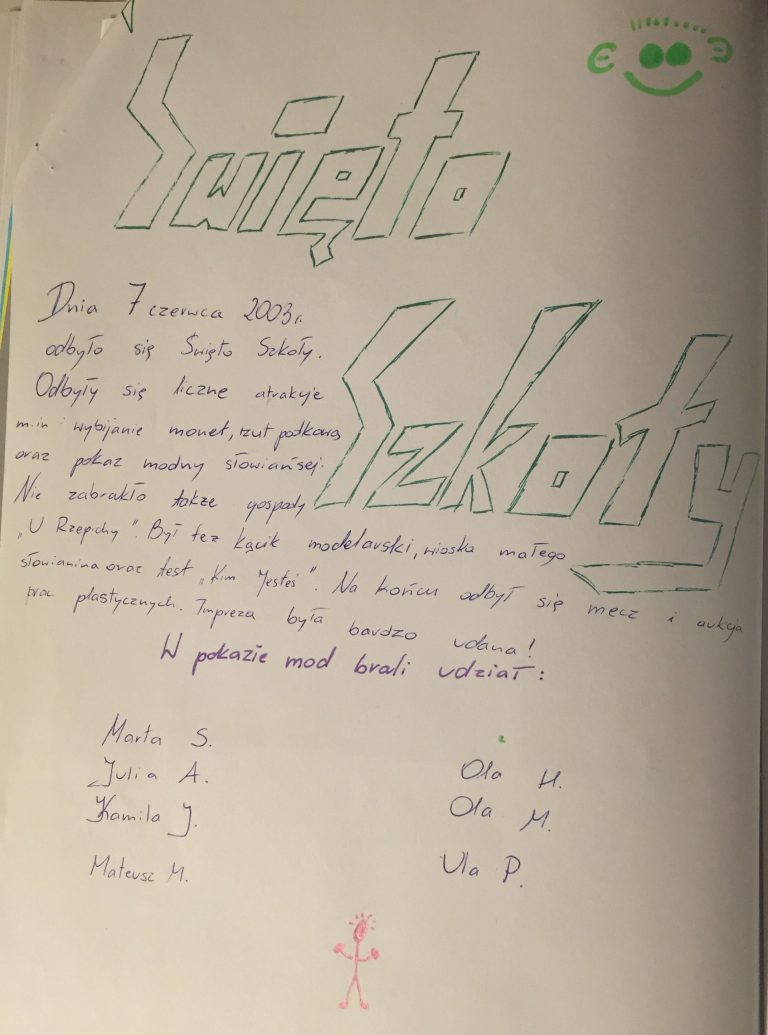 Święto
Szkoły
Dnia 7 czerwca 2003r.
odbyło się Święto Szkoły.
Odbyły się liczne atrakcje
m.in wybijanie monet, rzut podkową
oraz pokaz modny słowiańsej.
Nie zabrakło także gospody
„U Rzepichy”. Był też kącik modelarski, wioska małego
słowianina oraz test „Kim Jesteś”. Na końcu odbył się mecz i aukcja
prac plastycznych. Impreza była bardzo udana!
W pokazie mod brali udział:
Marta S.
Julia A.
Kamila J.
Mateusz M.
Ola H.
Ola M.
Ula P.